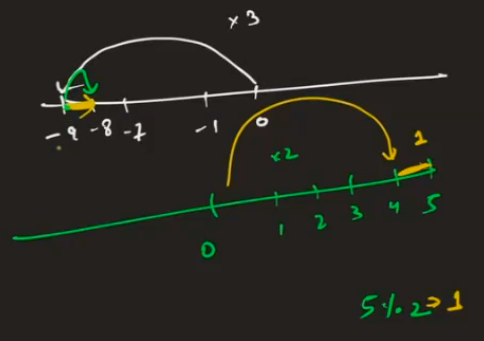 ×3
-9 -8 -7 -1 0
×2
1
0 1 2 3 4 5
5 % 2 ⇒ 1